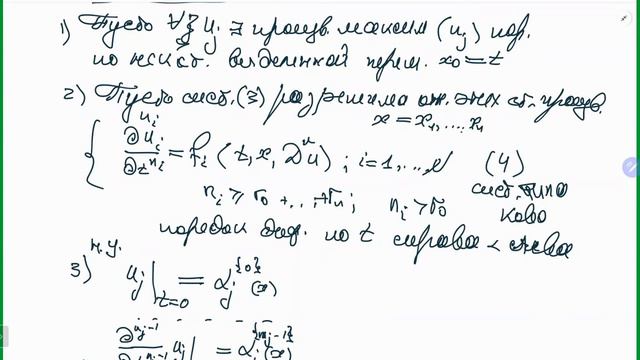 1) Пусть ∀ u_j ∃ произв. максим (n_j) пор.
по некот. выделенной перем. x_0 = t
2) Пусть сист. (3) разрешима отн. этих ст. произв.
x = x_1, ..., x_n
{ ∂^{n_i} u_i / ∂t^{n_i} = f_i (t, x, D^r u); i = 1, ..., N (4)
сист. типа
n_i ≥ r_0 + ... + r_n; n_i > r_0 Ковал
порядок диф. по t справа < слева
3) н.у. u_j |_{t=0} = α_j^{0} (x)
- - - - - - - -
∂^{n_j-1} / ∂t^{n_j-1} u_j | = α_j^{n_j-1} (x)